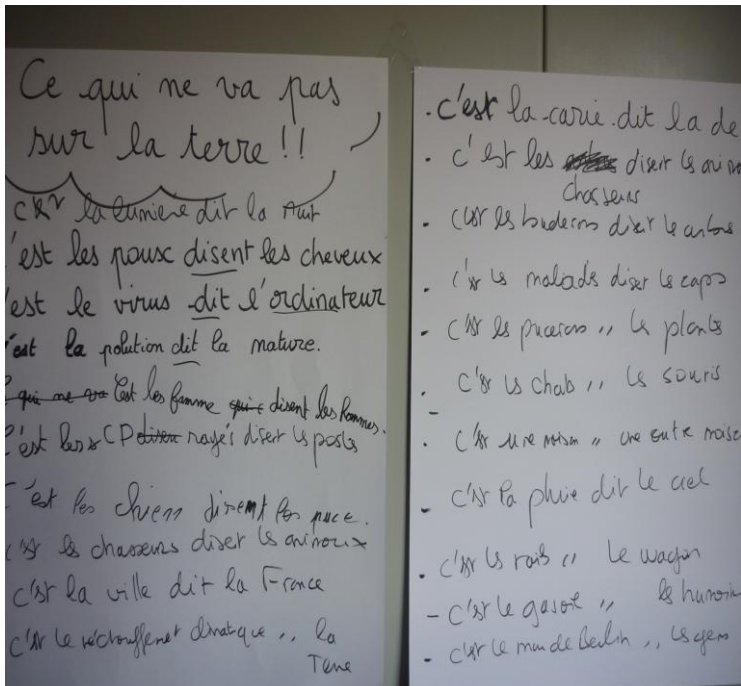 Ce qui ne va pas
sur la terre !!
la lumière dit la nuit
'est les poux disent les cheveux
'est le virus dit l'ordinateur
'est la polution dit la nature.
qui ne va C'est les famme disent les hommes.
C'est les CP rayés disent les posts
C'est les chiens disent les puce.
c'est les chasseurs disent les animaux
c'est la ville dit la France
c'est le réchauffement climatique ,, la
Terre
. c'est la carie dit la de
. c'est les disent les anima
chasseurs
. c'est les disent le
. c'est les malades disent les
. c'est les pucerons ,, les plantes
. c'est les chats ,, les souris
. c'est une ,, une autre
- c'est la pluie dit le ciel
. c'est les rails ,, le wagon
- c'est le gasoil ,, les humain
- c'est le mur de Berlin ,, les gens